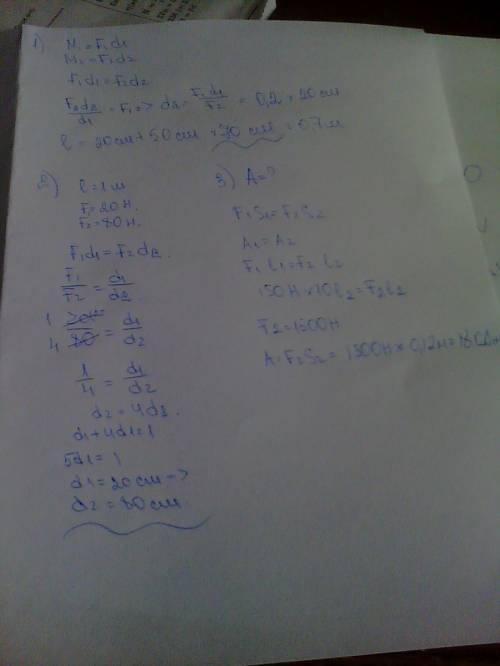 1) M₁=F₁d₁
M₂=F₂d₂
F₁d₁=F₂d₂
F₂d₂/d₁=F₁=> d₂=F₁d₁/F₂ = 0,2 = 20см
l = 20см+50см =70 см = 0,7м
2) l=1м
F₁=20Н.
F₂=80Н.
F₁d₁=F₂d₂.
F₁/F₂ = d₁/d₂
1 20/4 80 = d₁/d₂
1/4 = d₁/d₂
d₂=4d₁.
d₁+4d₁=1
5d₁=1
d₁=20см=>
d₂=80см
3) A=?
F₁S₁=F₂S₂
A₁=A₂
F₁l₁=F₂l₂
150Н×10l₂=F₂l₂
F₂=1500Н
A=F₂S₂= 1500Н×0,12м=180